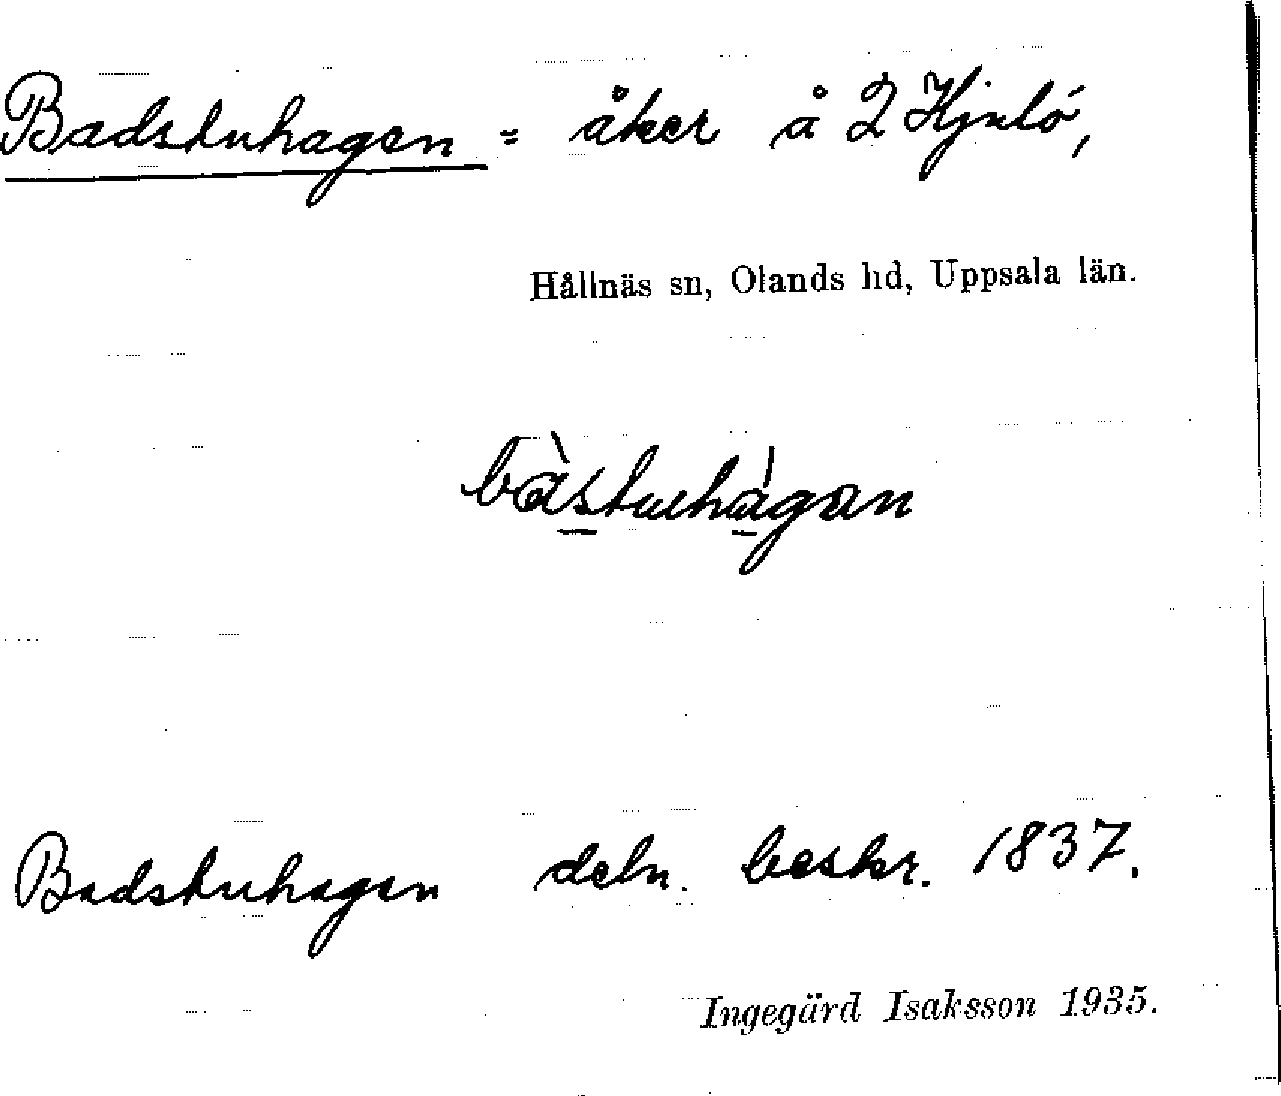 Badstuhagen = åker å 2 Hjälö,
Hållnäs sn, Olands hd, Uppsala län.
bàstuhágan
Badstuhagen deln. beskr. 1837.
Ingegärd Isaksson 1935.